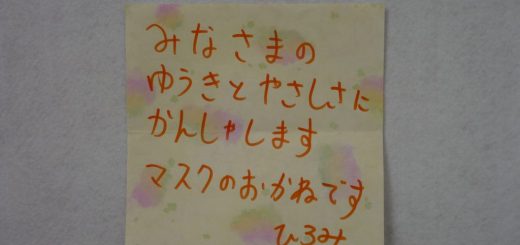 みなさまの
ゆうきとやさしさに
かんしゃします
マスクのおかねです
ひろみ